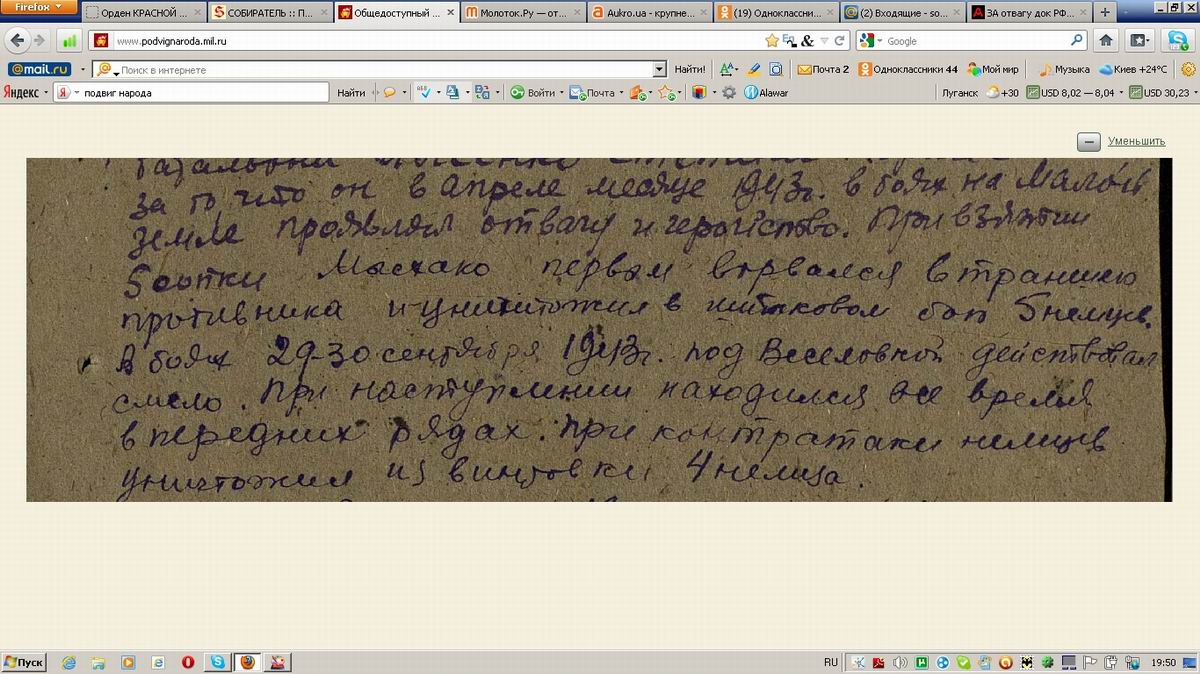 Firefox
Орден КРАСНОЙ ...
СОБИРАТЕЛЬ :: П...
Общедоступный ...
Молоток.Ру — от...
Aukro.ua - крупне...
(19) Одноклассни...
(2) Входящие - so...
ЗА отвагу док РФ...
www.podvignaroda.mil.ru
Google
@mail.ru
Поиск в интернете
Найти!
Почта 2
Одноклассники 44
Мой мир
Музыка
Киев +24°C
Яндекс
подвиг народа
Найти
Войти
Почта
Alawar
Луганск
+30
USD 8,02 — 8,04
USD 30,23
Уменьшить
за то что он в апреле месяце 1943г. в боях на Малой
земле проявлял отвагу и геройство. При взятии
Мысхако первым ворвался в траншею
противника и уничтожил в штыковом бою 5 немцев.
В боях 29-30 сентября 1943г. под Веселовкой действовал
смело. При наступлении находился все время
в передних рядах. При контратаки немцев
уничтожил из винтовки 4 немца.
Пуск
RU
19:50